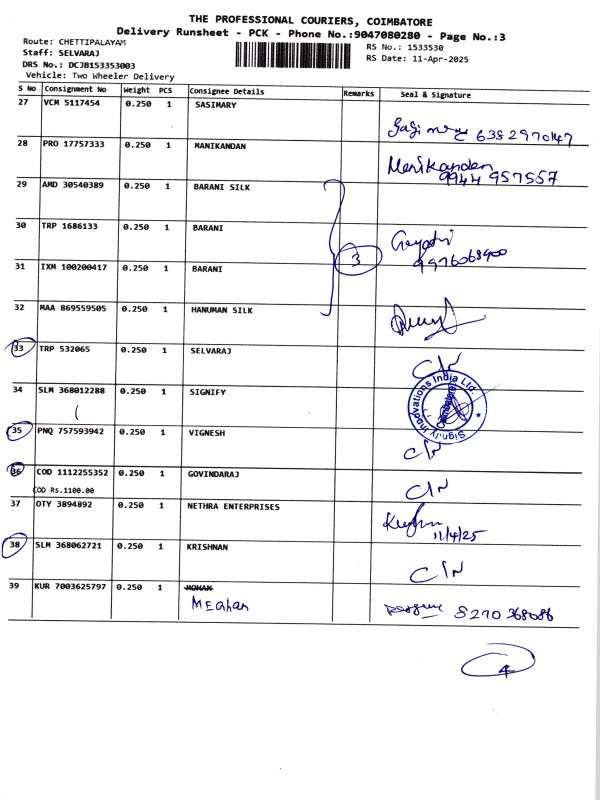 THE PROFESSIONAL COURIERS, COIMBATORE
Delivery Runsheet - PCK - Phone No.:9047080280 - Page No.:3
Route: CHETTIPALAYAM
Staff: SELVARAJ
DRS No.: DCJB153353003
Vehicle: Two Wheeler Delivery
RS No.: 1533530
RS Date: 11-Apr-2025
S No Consignment No Weight PCS Consignee Details Remarks Seal & Signature
27 VCM 5117454 0.250 1 SASIMARY
6382970147
28 PRO 17757333 0.250 1 MANIKANDAN
Manikandan
9944 957557
29 AMD 30540389 0.250 1 BARANI SILK
30 TRP 1686133 0.250 1 BARANI
Gayatri
9976068900
3
31 IXM 100200417 0.250 1 BARANI
32 MAA 869559505 0.250 1 HANUMAN SILK
33 TRP 532065 0.250 1 SELVARAJ
C/N
34 SLM 368012288 0.250 1 SIGNIFY
Signify Innovations India Ltd
Coimbatore
35 PNQ 757593942 0.250 1 VIGNESH
C/N
36 COD 1112255352 0.250 1 GOVINDARAJ
COD Rs.1100.00
C/N
37 OTY 3894892 0.250 1 NETHRA ENTERPRISES
11/4/25
38 SLM 368062721 0.250 1 KRISHNAN
C/N
39 KUR 7003625797 0.250 1 MOHAN
MEghan
8270 368086
4